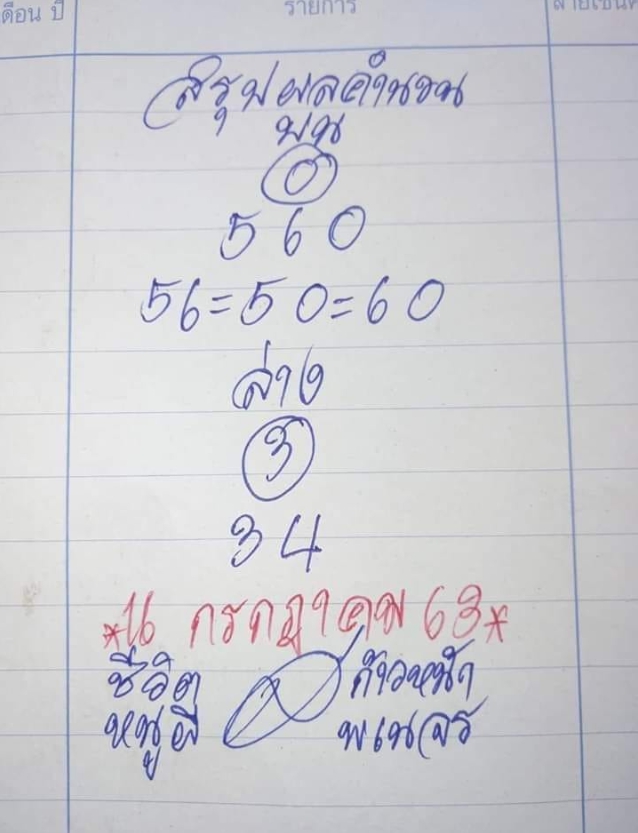 เดือน ปี รายการ
สรุปผลคำนวน
บน
0
560
56=50=60
ล่าง
3
34
*16 กรกฎาคม 63*
ชีวิต ก้าวหน้า
หนูผี พเนจร